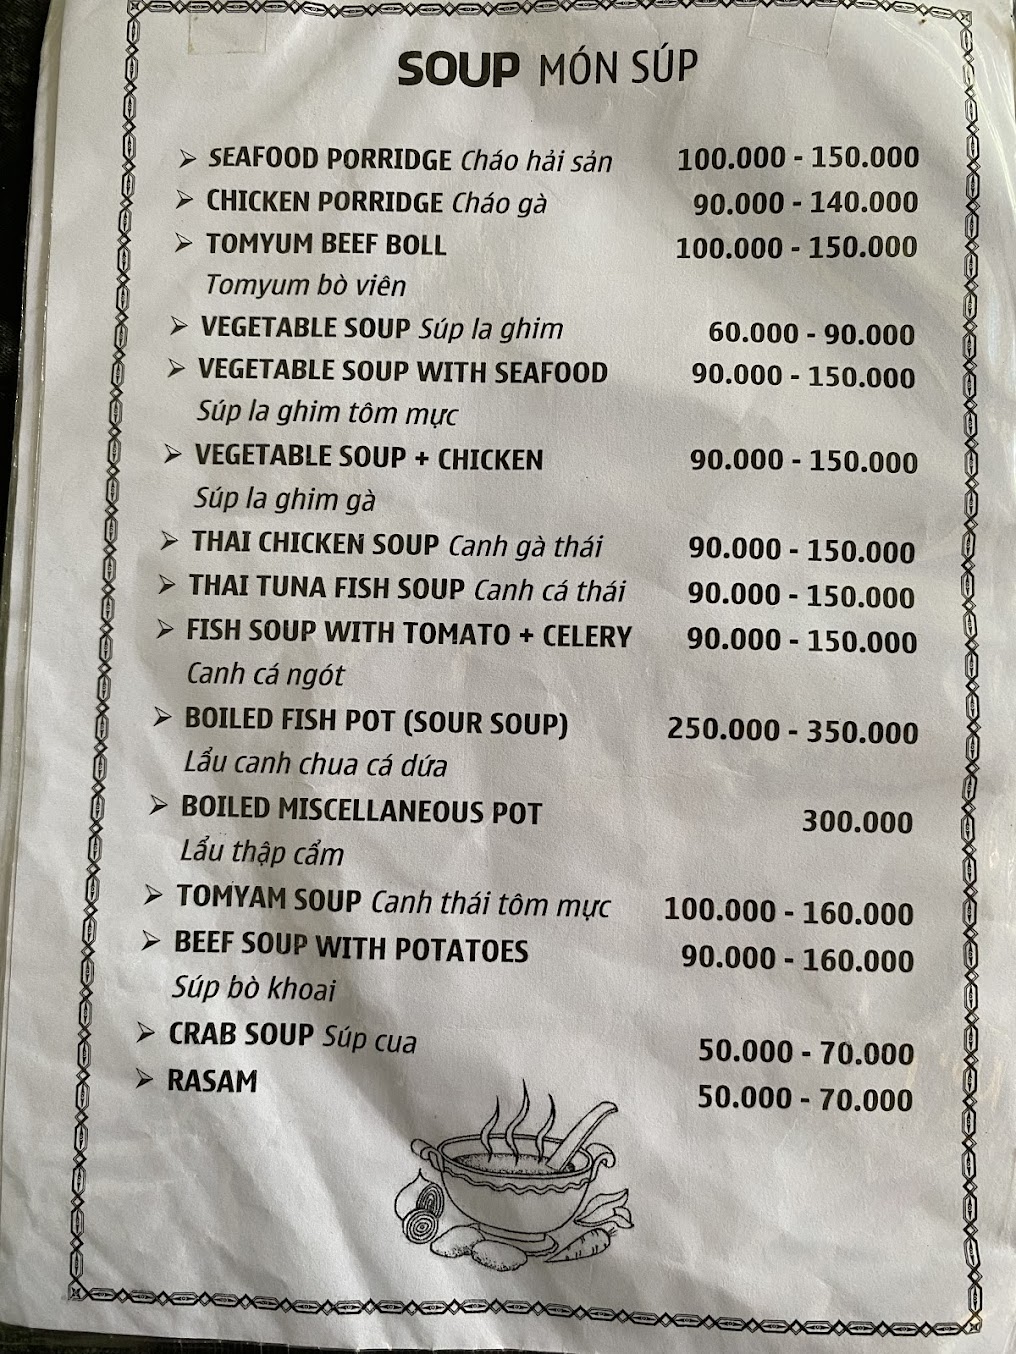 SOUP MÓN SÚP
➢ SEAFOOD PORRIDGE Cháo hải sản 100.000 - 150.000
➢ CHICKEN PORRIDGE Cháo gà 90.000 - 140.000
➢ TOMYUM BEEF BOLL 100.000 - 150.000
Tomyum bò viên
➢ VEGETABLE SOUP Súp la ghim 60.000 - 90.000
➢ VEGETABLE SOUP WITH SEAFOOD 90.000 - 150.000
Súp la ghim tôm mực
➢ VEGETABLE SOUP + CHICKEN 90.000 - 150.000
Súp la ghim gà
➢ THAI CHICKEN SOUP Canh gà thái 90.000 - 150.000
➢ THAI TUNA FISH SOUP Canh cá thái 90.000 - 150.000
➢ FISH SOUP WITH TOMATO + CELERY 90.000 - 150.000
Canh cá ngót
➢ BOILED FISH POT (SOUR SOUP) 250.000 - 350.000
Lẩu canh chua cá dứa
➢ BOILED MISCELLANEOUS POT 300.000
Lẩu thập cẩm
➢ TOMYAM SOUP Canh thái tôm mực 100.000 - 160.000
➢ BEEF SOUP WITH POTATOES 90.000 - 160.000
Súp bò khoai
➢ CRAB SOUP Súp cua 50.000 - 70.000
➢ RASAM 50.000 - 70.000